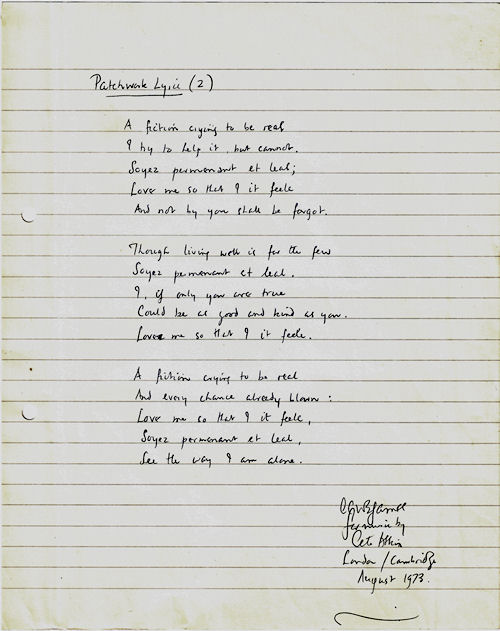 Patchwork Lyric (2)
A fiction crying to be real
I try to help it, but cannot.
Soyez permanent et leal;
Love me so that I it feele
And not by you shall be forgot.
Though living well is for the few
Soyez permanent et leal.
I, if only you are true
Could be as good and kind as you.
Love me so that I it feele.
A fiction crying to be real
And every chance already blown:
Love me so that I it feele,
Soyez permanent et leal,
See the way I am alone.
for music by
Pete Atkin
London / Cambridge
August 1973.